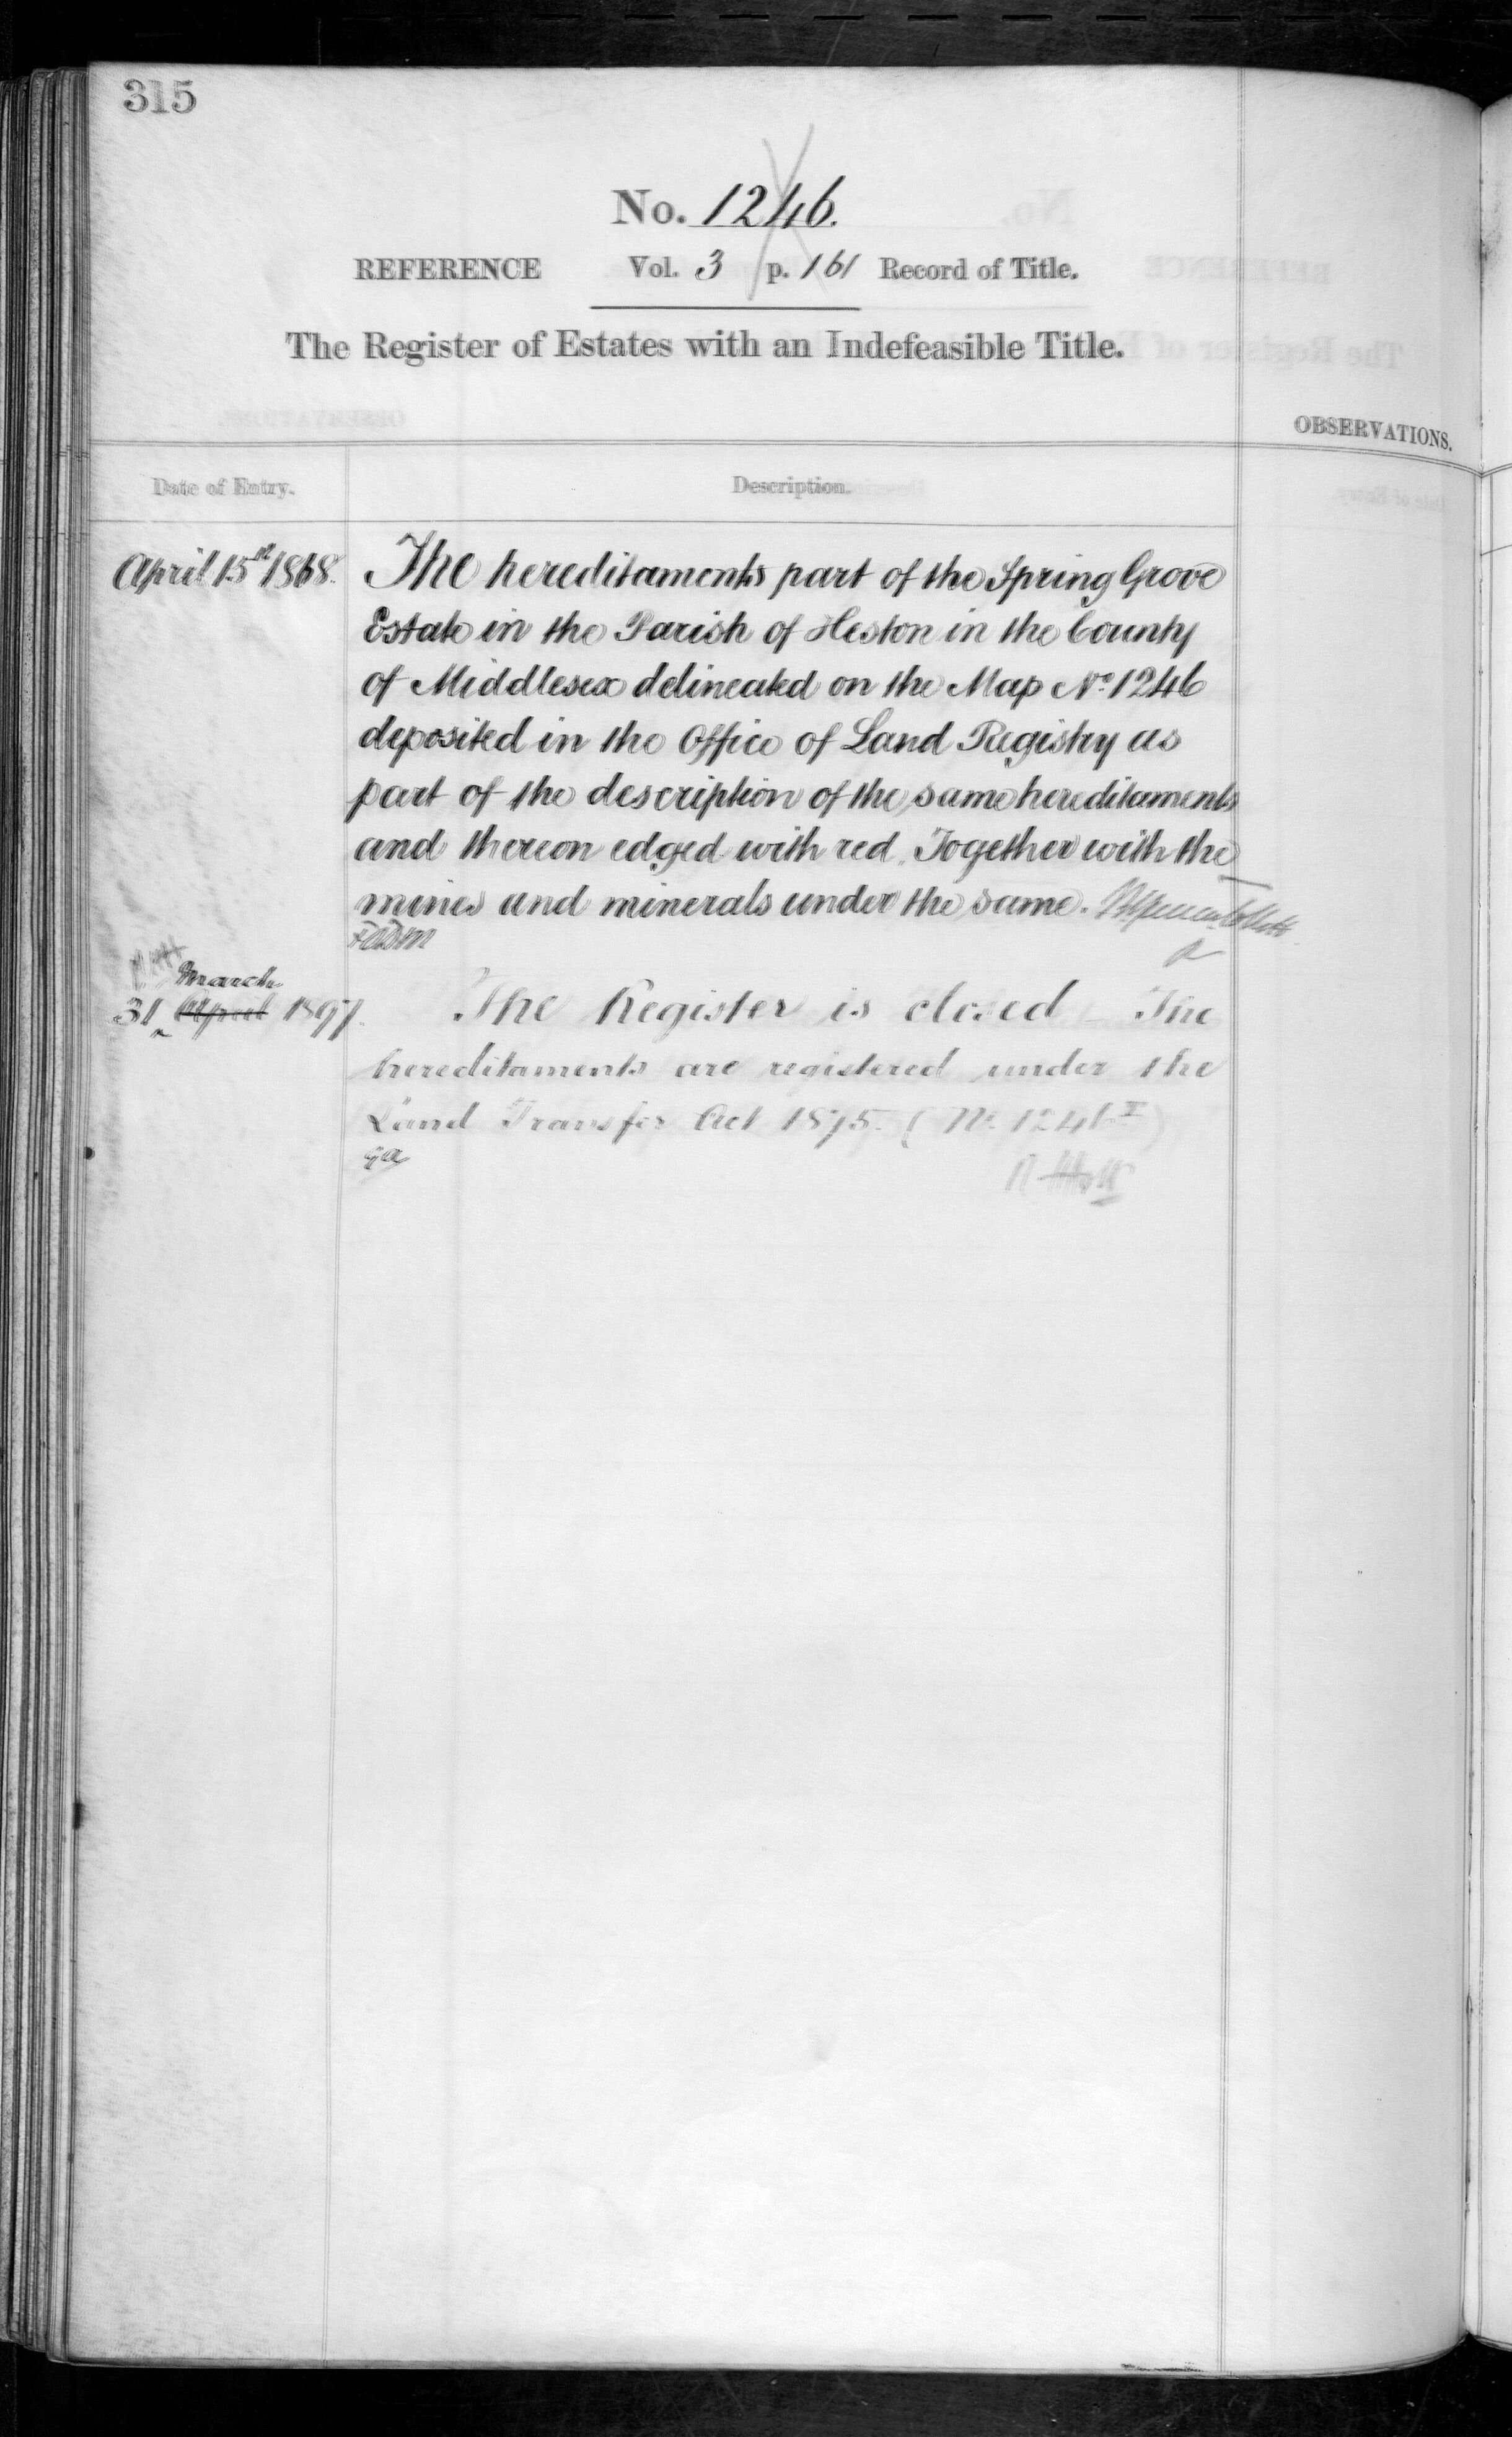 315
No. 1246.
REFERENCE Vol. 3 p. 161 Record of Title.
The Register of Estates with an Indefeasible Title.
OBSERVATIONS.
Date of Entry. Description.
April 15th 1868. The hereditaments part of the Spring Grove
Estate in the Parish of Heston in the County
of Middlesex delineated on the Map No. 1246
deposited in the Office of Land Registry as
part of the description of the same hereditaments
and thereon edged with red. Together with the
mines and minerals under the same.
March
31 April 1897. The Register is closed – The
hereditaments are registered under the
Land Transfer Act 1875. (No. 1246 I)